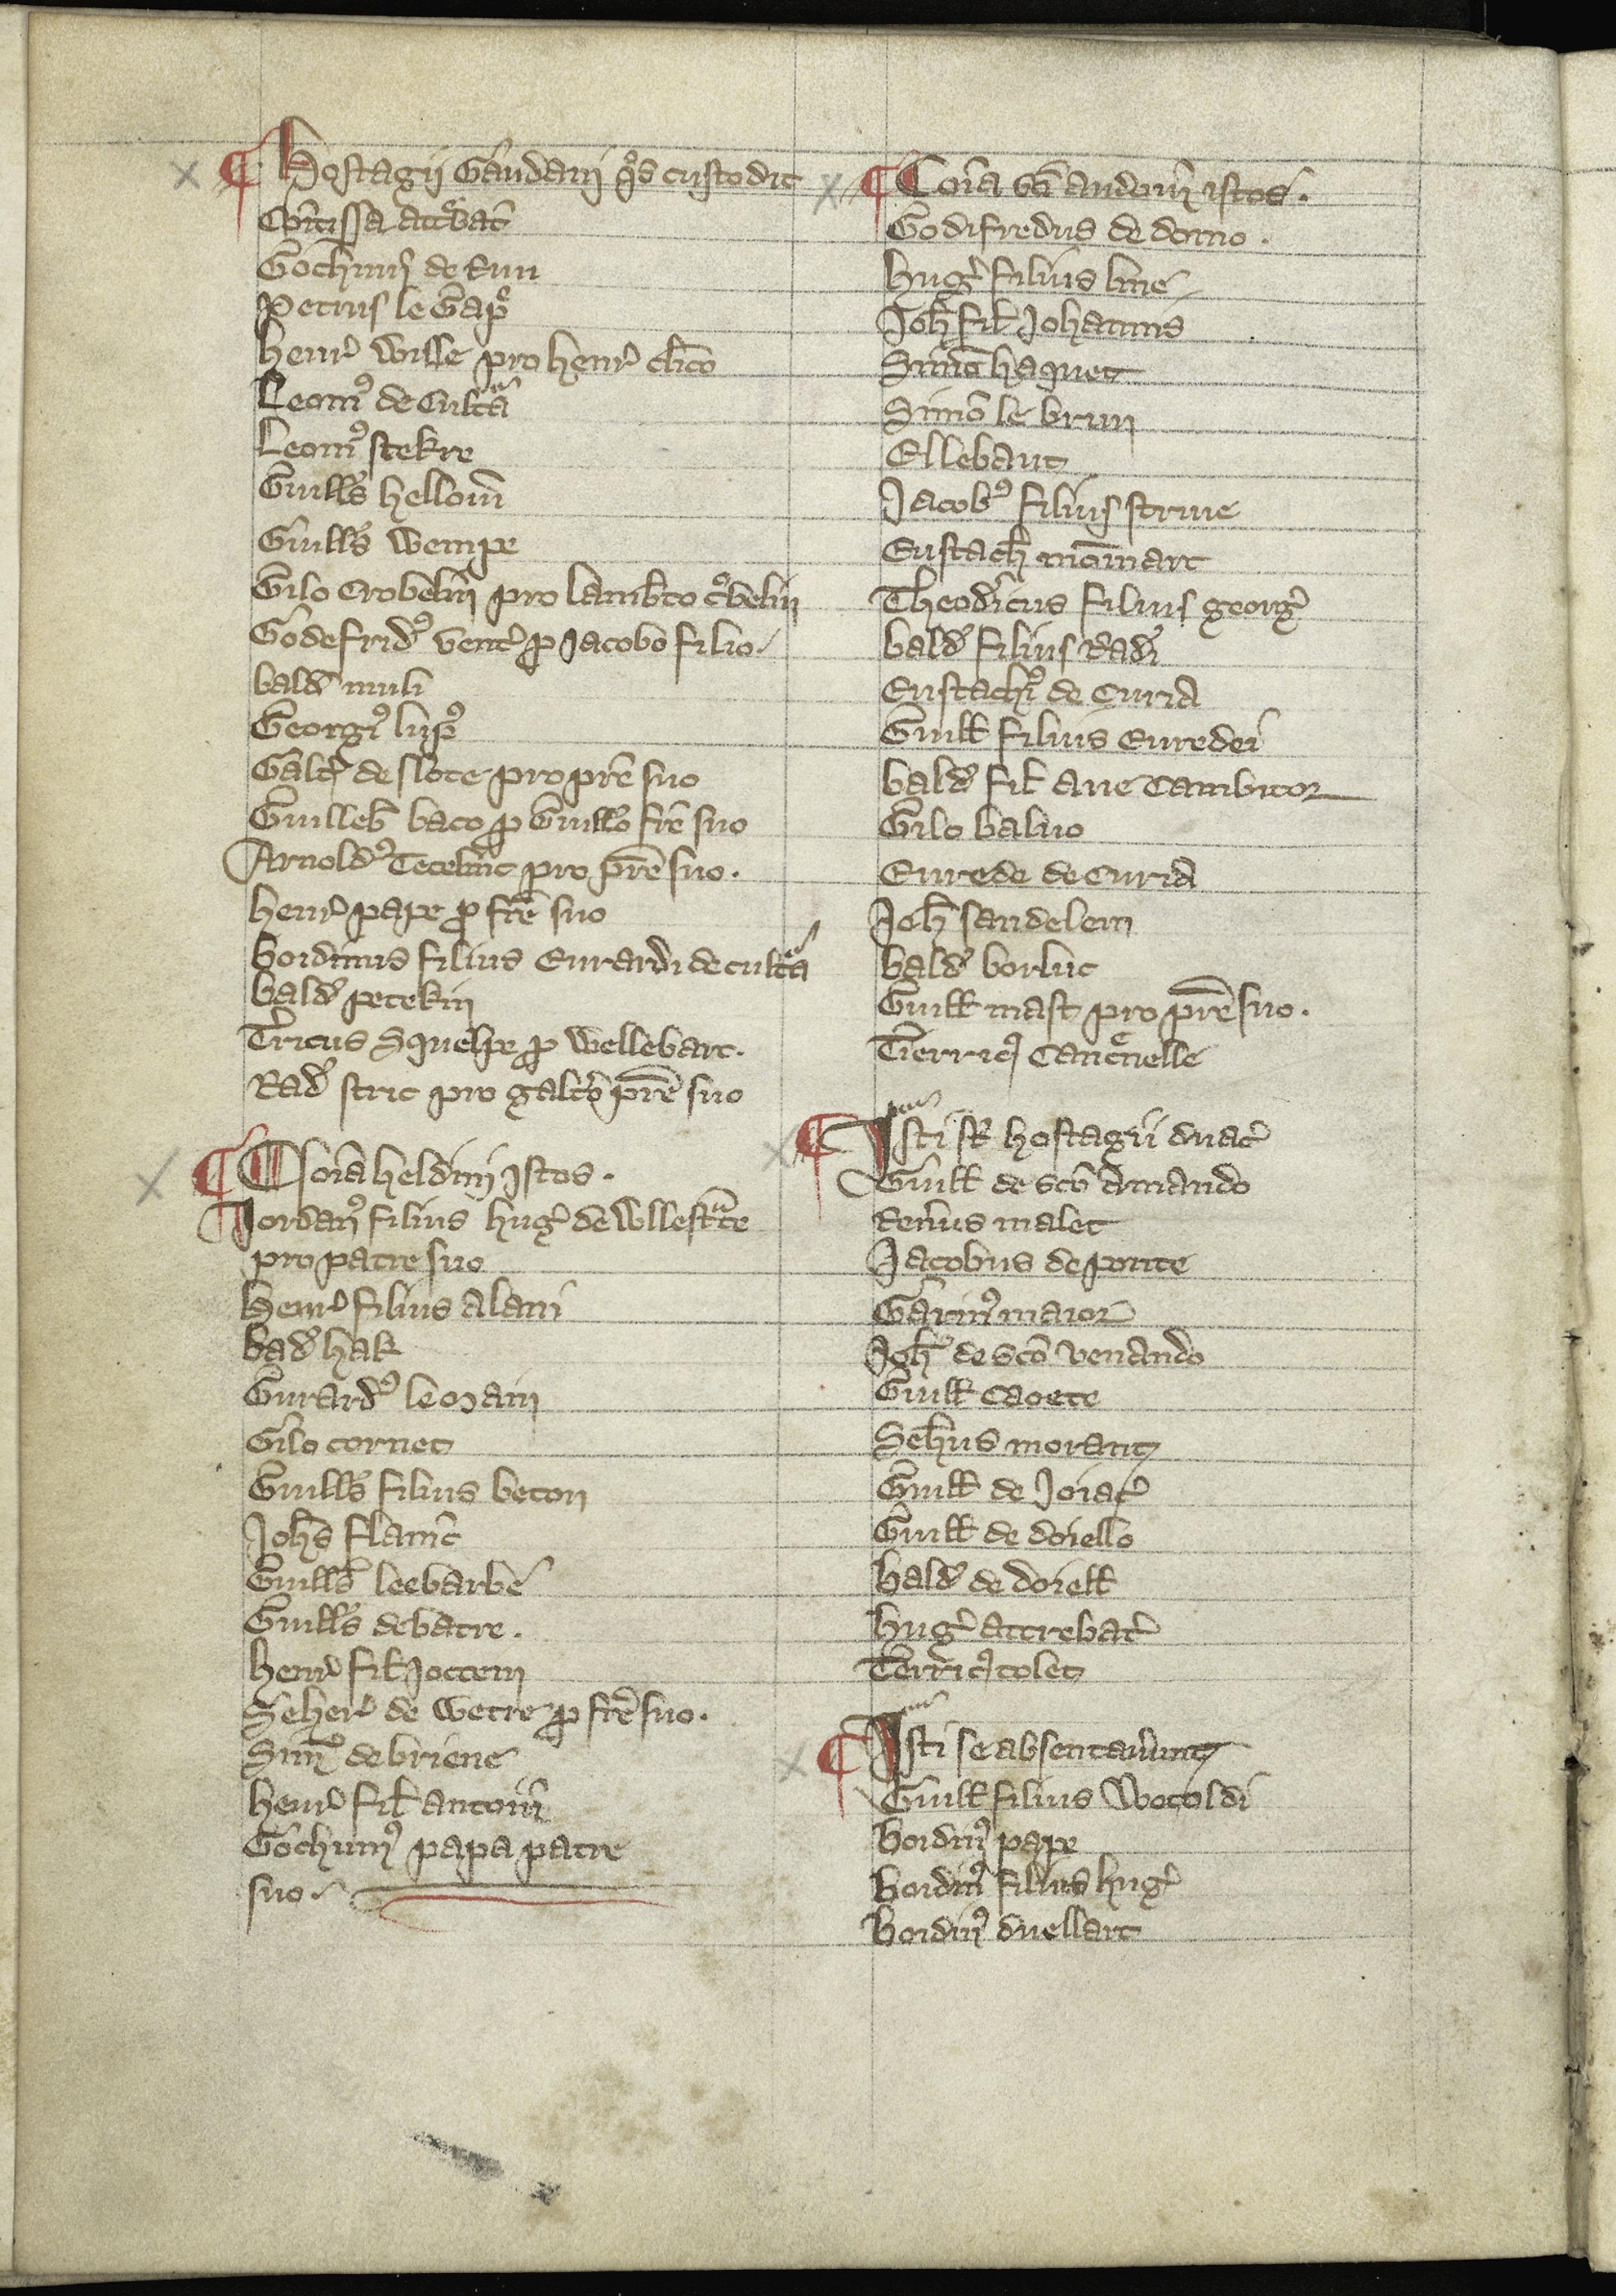 ¶ Hostagii Gandani qͦs custodit
Cōitissa att͛bat̄
Gochuin9 de Run
Petrus le Gap͛
henr̾ Wisse pro henr̾ cl̄ico
Leon9 de Cult͛a
Leon9 stekre
Guill̄s hellouī
Guill̄s Wempe
Gilo Crobeliń pro lamb̄to cͦbelin
Godefrid9 vent̾ ꝓ Jacobo filio
bald̾ muli
Georgi9 lup9
Galt̾ de slote pro pr̄e suo
Guilleb̄ baco ꝓ Guill̄o fr̄e suo
Arnold9 Tecelinc pro pr̄e suo.
henr̾ pape ꝓ fr̄e suo
boidinus filius Eurardi de cult͛a
bald̾ petekin
T̾ricus Squelpe ꝓ Wellebart.
Rad̾ stric pro galt̾o pr̄e suo
¶ Soīa heldini Istos.
Jordan9 filius hug̾ de Wllest͛te
pro patre suo
henr̾ filius alani
bad̾ hak
Gurard9 le Main
Gilo cornet
Guill̄s filius beton
Joh̄s flamc̄
Guill̄s leebarbe
Guill̄s debatre.
henr̾ fil̄ Joctem
Seher̾ de Wetre ꝓ fr̄e suo.
Sim9 de briene
henr̾ fil̄ antoiń
Gochuin9 papa patre
suo.
¶ Coīa Sc̄i audom̄ istos.
Godifredus de domo.
hug̾ filius line
Joh̄ fil̄ Johannis
haquet
Simō le brun
Ellebaut
Jacob9 filius strue
Eustach̄ mōmart
Theod̾icus filius georg̾
bald̾ filius Rad̾i
Eustachi9 de Curia
Guill̄ filius Euredei
bald̾ fil̄ aue Cambitor
Gilo baluo
Eurede de Curia
Joh̄ sandelem
bald̾ borlut
Guill̄ mast pro pr̄e suo.
Tierric9 Cant͛nelle
¶ Isti s̄t hostagii duac̾
Guill̄ de Sc̄o amando
Ren̾us malet
Jacobus de ponte
Garin9 maior
Joh̄ de Sc̄o venando
Guill̄ Caoete
Seh̄us morant
Guill̄ de Joiac̾
Guill̄ de doiello
bald̾ de doiell̄
hug̾ attrebat̾
Terric9 tolet
¶ Isti se absentauerunt
Guill̄ filius Wotoldi
boidin9 pape
boidin9 filius hug̾
boidin9 duellart